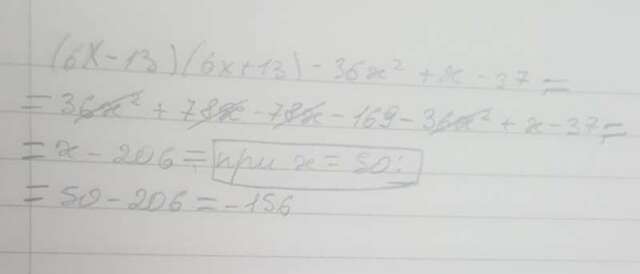 (6x-13)(6x+13)-36x²+x-37=
=36x²+78x-78x-169-36x²+x-37=
=x-206= при x=50:
=50-206=-156